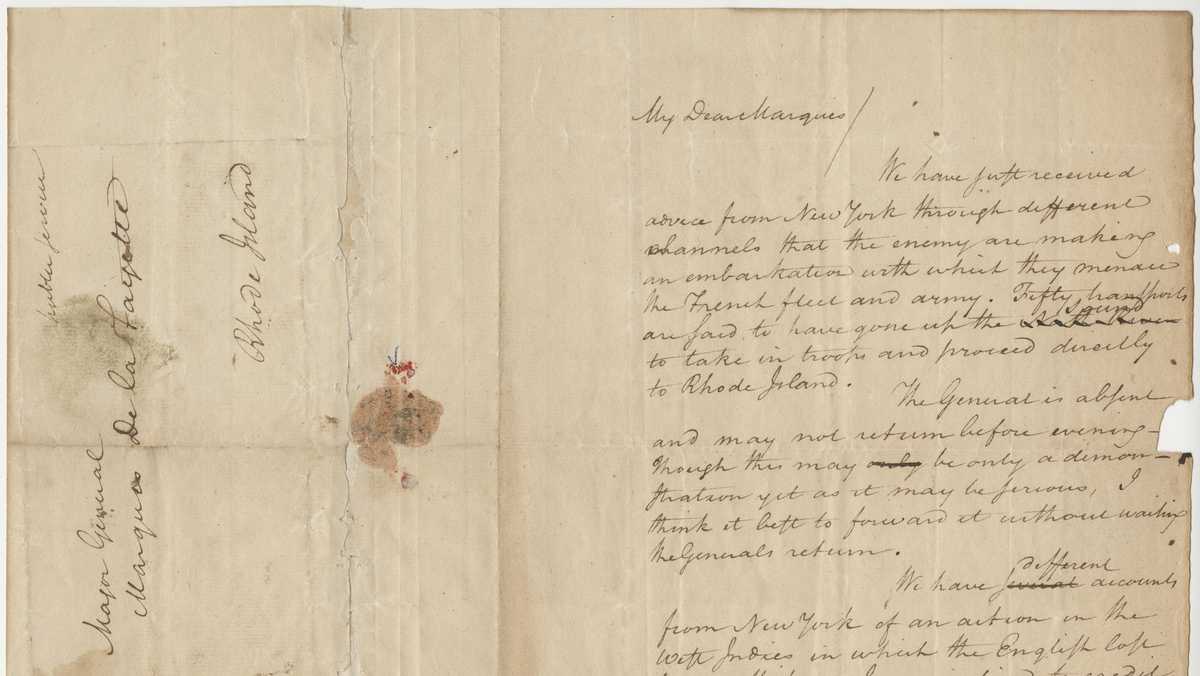 public service
Major General
Marquis De la Fayette
Rhode Island
My Dear Marquis/
We have just received
advice from New York through different
channels that the enemy are making
an embarkation with which they menace
the French fleet and army. Fifty transports
Sound
are said to have gone up the
to take in troops and proceed directly
to Rhode Island.
The General is absent
and may not return before evening-
Though this may only be only a demon-
stration yet as it may be serious, I
think it best to forward it without waiting
the Generals return.
different
We have several accounts
from New York of an action in the
West Indies in which the English lost